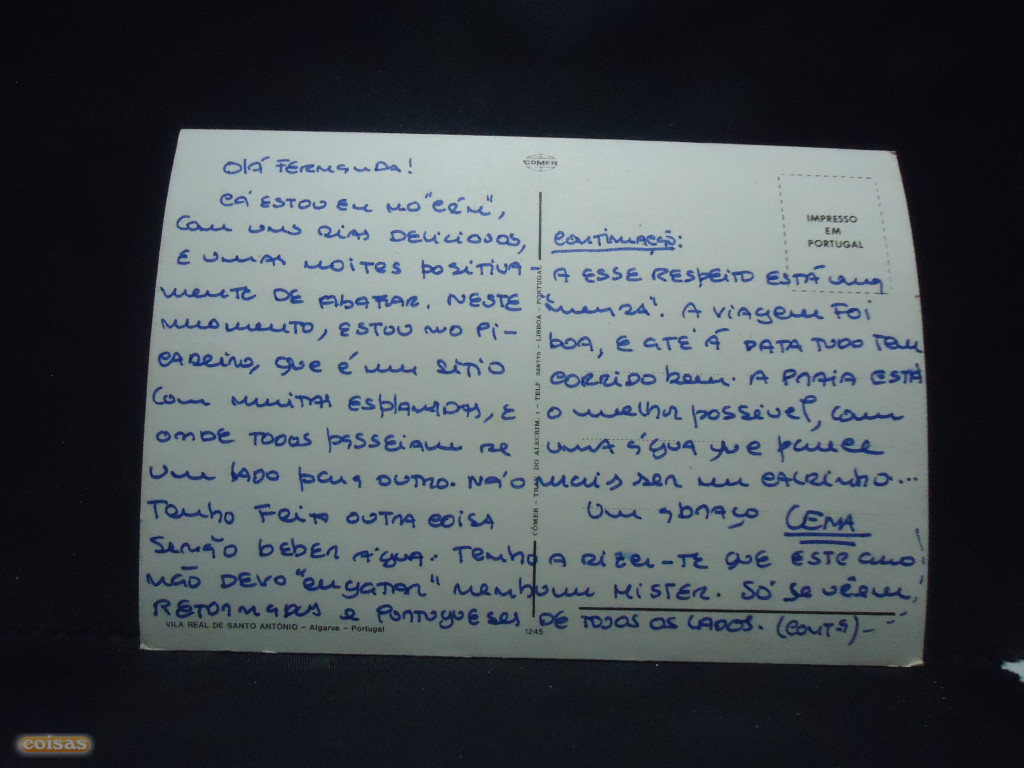 OLÁ FERNANDA!
CÁ ESTOU EU NO "CÉU",
COM UNS DIAS DELICIOSOS,
E UMAS NOITES POSITIVA-
MENTE DE ABAFAR. NESTE
MOMENTO, ESTOU NO PI-
CADEIRO, QUE É UM SÍTIO
COM MUITAS ESPLANADAS, E
ONDE TODOS PASSEIAM DE
UM LADO PARA OUTRO. NÃO
TENHO FEITO OUTRA COISA
SENÃO BEBER ÁGUA. TENHO A DIZER-TE QUE ESTE ANO
NÃO DEVO "ENGATAR" NENHUM MISTER. SÓ SE VÊEM
REFORMADOS E PORTUGUESES DE TODOS OS LADOS. (CONT.)-
CONTINUAÇÃO:
A ESSE RESPEITO ESTÁ UMA
. A VIAGEM FOI
BOA, E ATÉ À DATA TUDO TEM
CORRIDO BEM. A PRAIA ESTÁ
O MELHOR POSSÍVEL, COM
UMA ÁGUA QUE PARECE
MAIS SER UM CALDINHO...
UM ABRAÇO CEMA
COMER
IMPRESSO
EM
PORTUGAL
CÓMER - TRAV. DO ALECRIM, 1 - TELF. 328775 - LISBOA - PORTUGAL
VILA REAL DE SANTO ANTÓNIO - Algarve - Portugal
1245
coisas